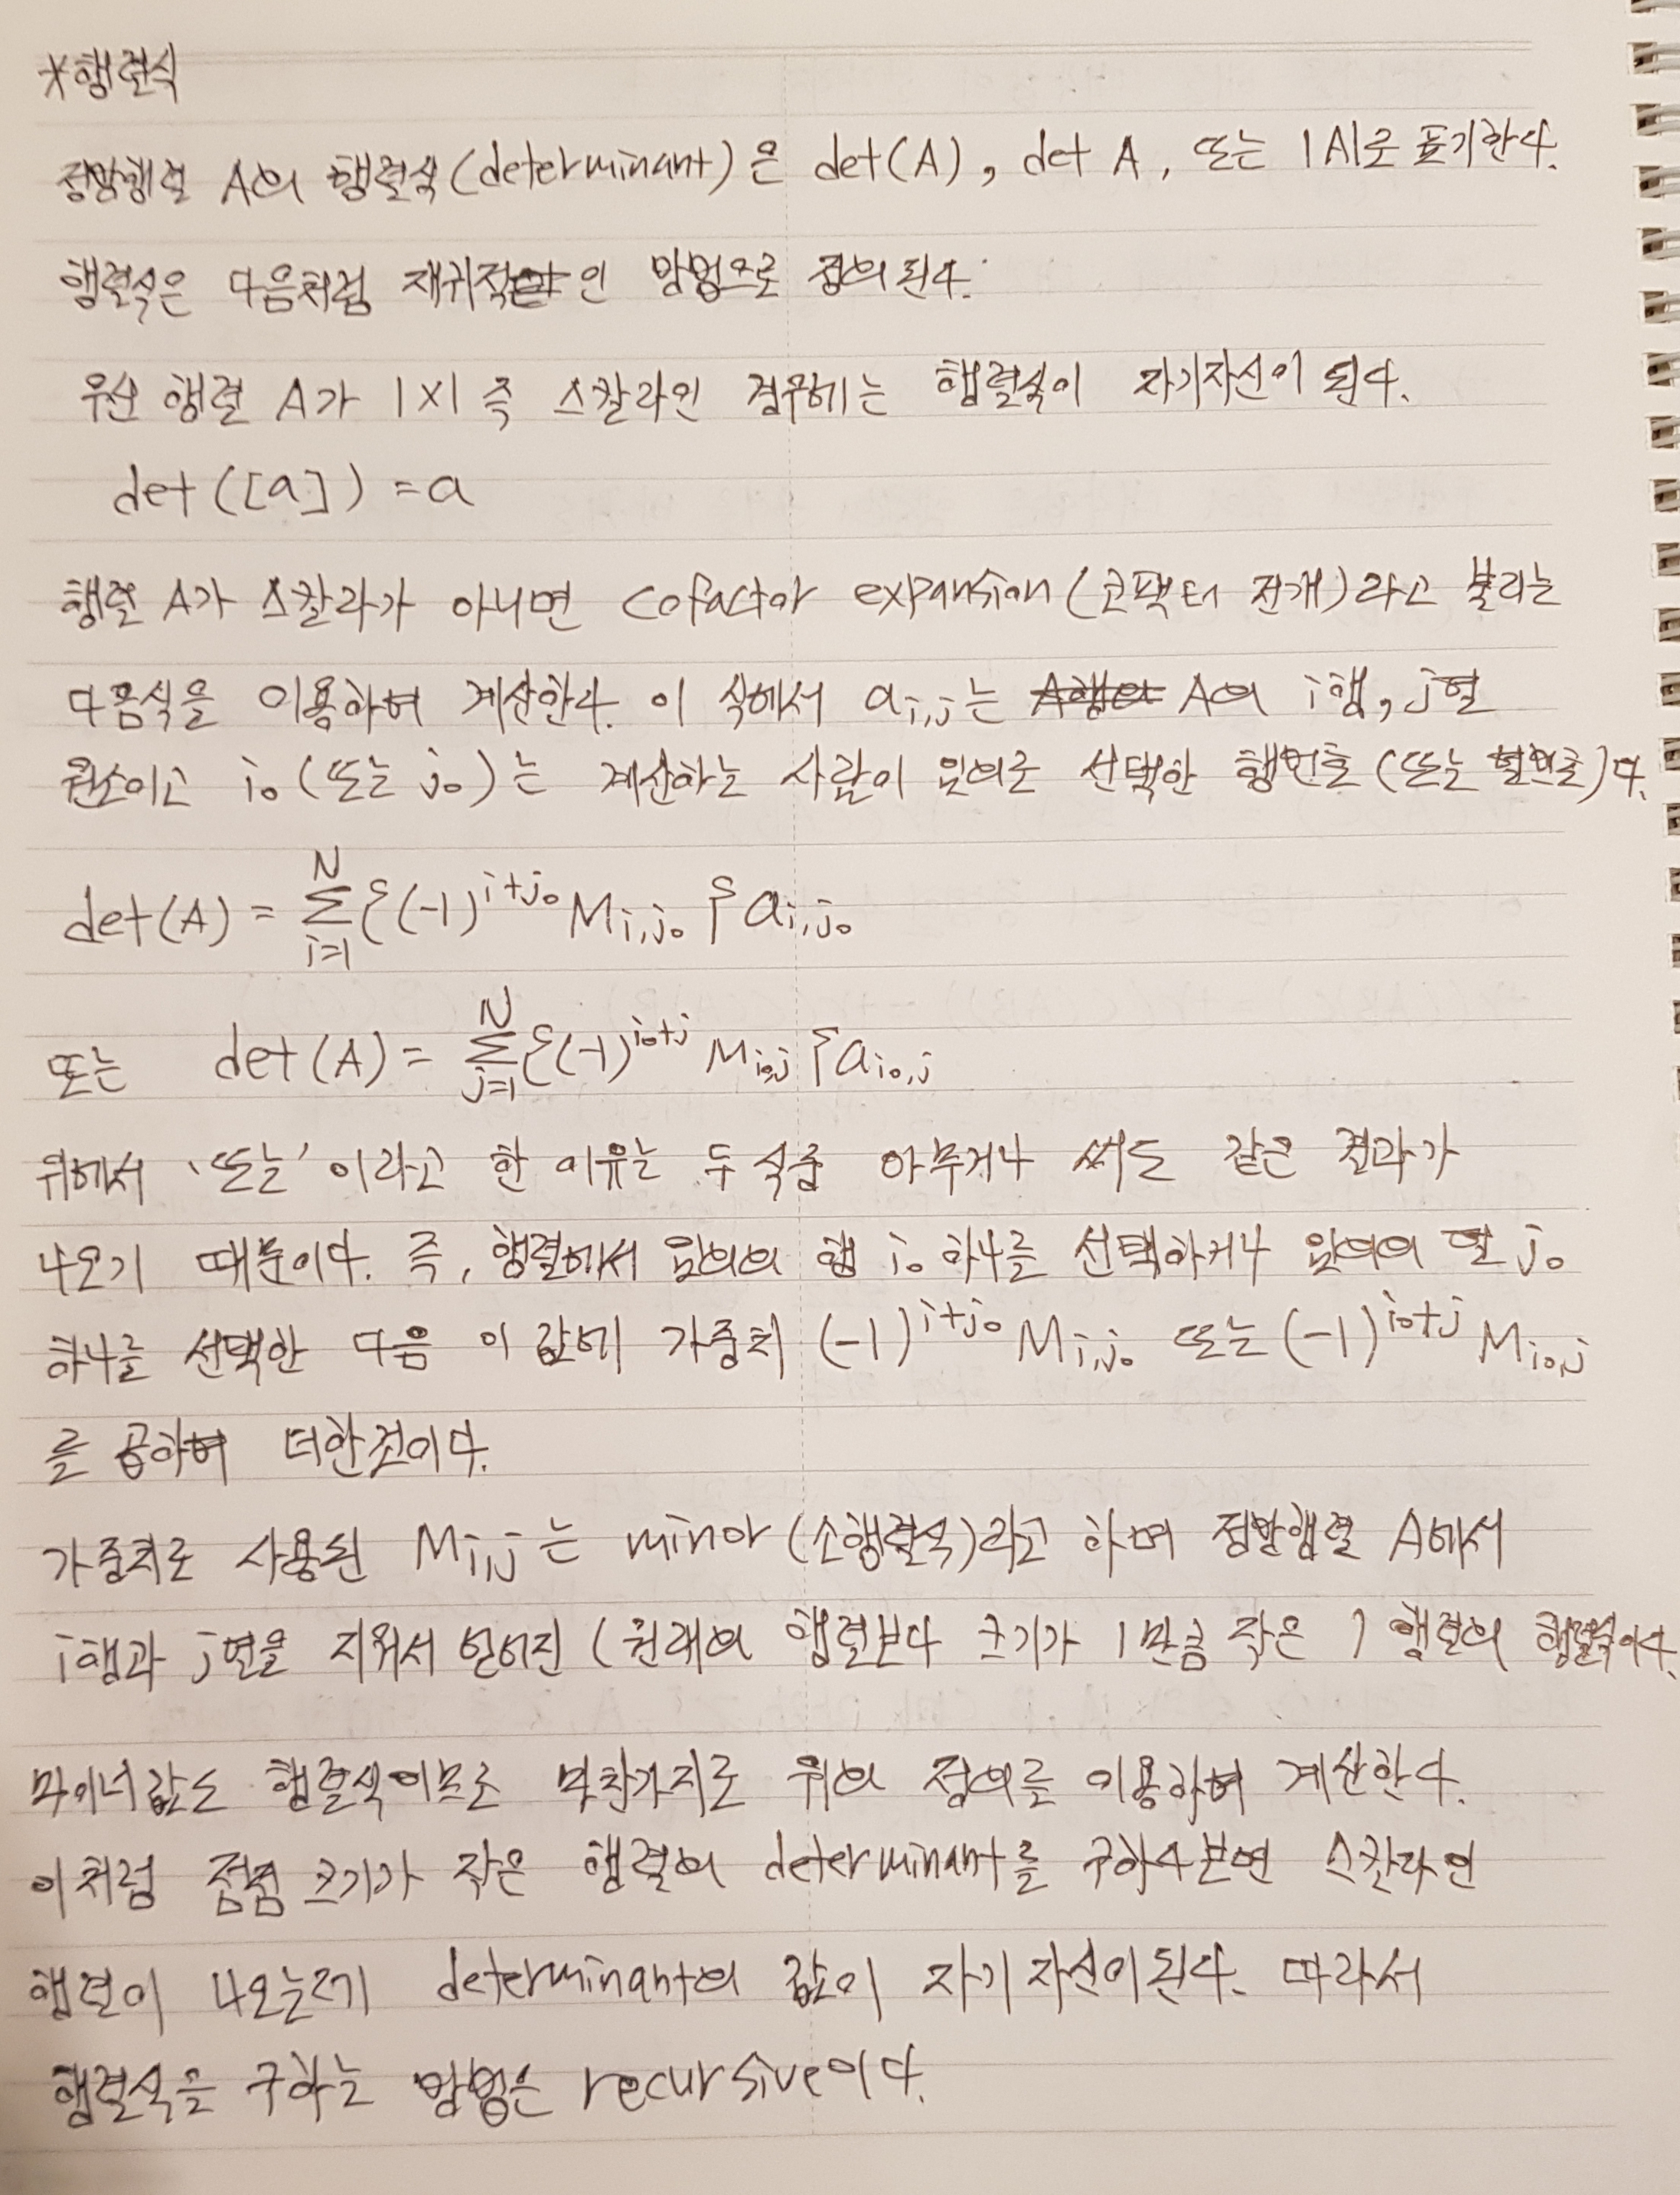 *행렬식
정방행렬 A의 행렬식(determinant)은 det(A), det A, 또는 |A|로 표기한다.
행렬식은 다음처럼 재귀적인 방법으로 정의된다.
우선 행렬 A가 1×1 즉 스칼라인 경우에는 행렬식이 자기자신이 된다.
det([a])=a
행렬 A가 스칼라가 아니면 cofactor expansion(코팩터 전개)라고 불리는
다음식을 이용하여 계산한다. 이 식에서 a_{i,j}는 A의 i행, j열
원소이고 i₀(또는 j₀)는 계산하는 사람이 임의로 선택한 행번호(또는 열번호)다.
det(A) = \sum_{i=1}^{N} {(-1)^{i+j₀} M_{i,j₀}} a_{i,j₀}
또는 det(A) = \sum_{j=1}^{N} {(-1)^{i₀+j} M_{i₀,j}} a_{i₀,j}
위에서 '또는'이라고 한 이유는 두 식중 아무거나 써도 같은 결과가
나오기 때문이다. 즉, 행렬에서 임의의 행 i₀ 하나를 선택하거나 임의의 열 j₀
하나를 선택한 다음 이 값에 가중치 (-1)^{i+j₀} M_{i,j₀} 또는 (-1)^{i₀+j} M_{i₀,j}
를 곱하여 더한것이다.
가중치로 사용된 M_{i,j}는 minor(소행렬식)라고 하며 정방행렬 A에서
i행과 j열을 지워서 얻어진 (원래의 행렬보다 크기가 1만큼 작은) 행렬의 행렬식이다.
마이너값도 행렬식이므로 마찬가지로 위의 정의를 이용하여 계산한다.
이처럼 점점 크기가 작은 행렬의 determinant를 구하다보면 스칼라인
행렬이 나오는데 determinant의 값이 자기 자신이된다. 따라서
행렬식을 구하는 방법은 recursive이다.